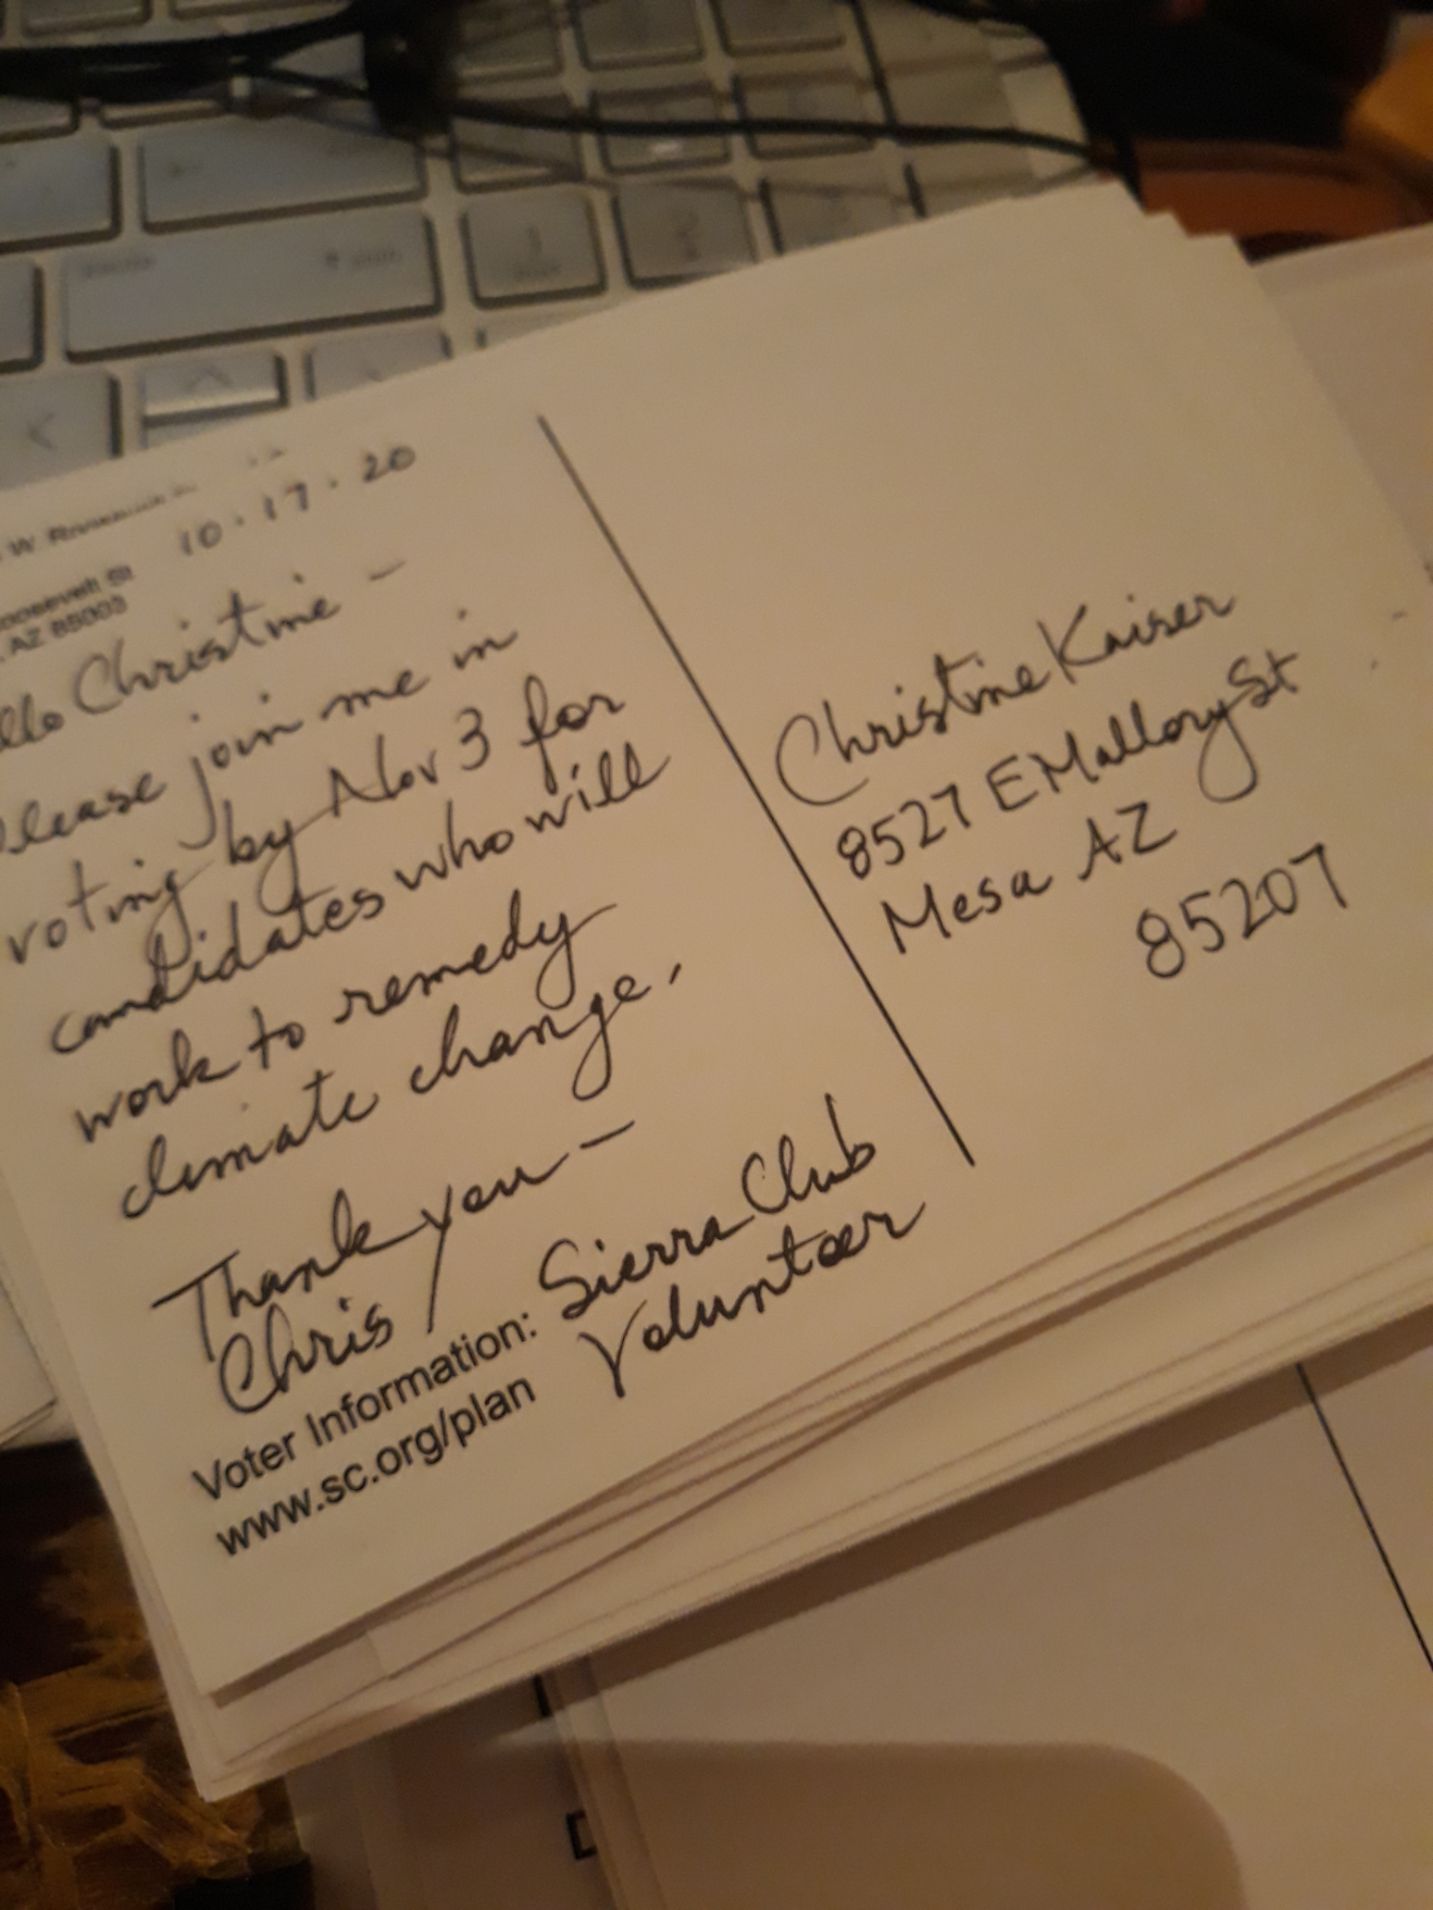 10.17.20
AZ 85003
Christine –
Please join me in
voting by Nov 3 for
candidates who will
work to remedy
climate change.
Thank you –
Chris / Sierra Club
Volunteer
Voter Information:
www.sc.org/plan
Christine Kaiser
8527 E Mallory St
Mesa AZ
85207